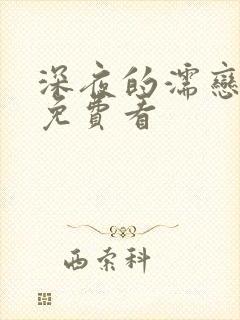 深夜的濡戀
免費看
西索科